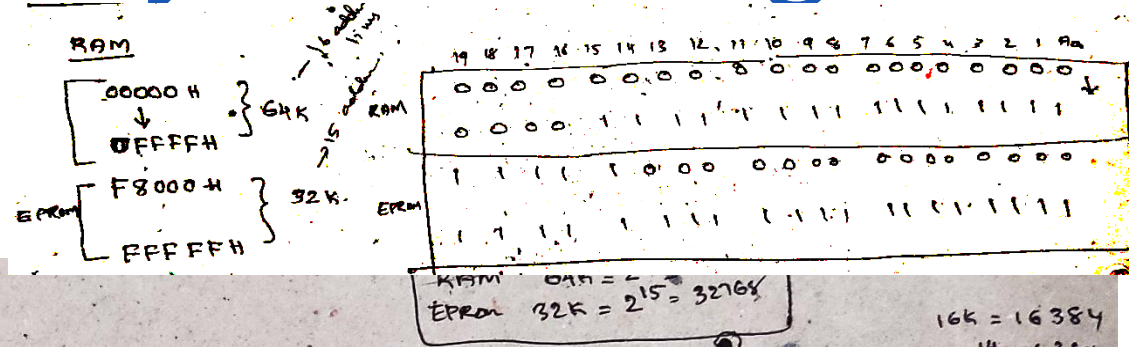 RAM
00000 H
↓
0FFFFH
} 64K → 16 addr lines
F8000 H
EPROM
FFFFFH
} 32K. → 15 addr.
19 18 17 16 15 14 13 12 11 10 9 8 7 6 5 4 3 2 1 A0
RAM
0 0 0 0 0 0 0 0 0 0 0 0 0 0 0 0 0 0 0 0
0 0 0 0 1 1 1 1 1 1 1 1 1 1 1 1 1 1 1 1
EPROM
1 1 1 1 1 0 0 0 0 0 0 0 0 0 0 0 0 0 0 0
1 1 1 1 1 1 1 1 1 1 1 1 1 1 1 1 1 1 1 1
RAM 64K = 2
EPROM 32K = 2^15 = 32768
16K = 16384